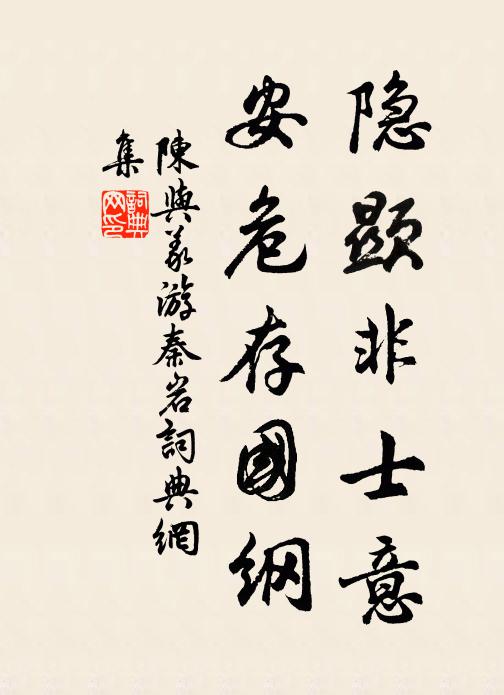 隐顯非士意
安危存國纲
陳與义游秦岩詞典網
集
詞典网印